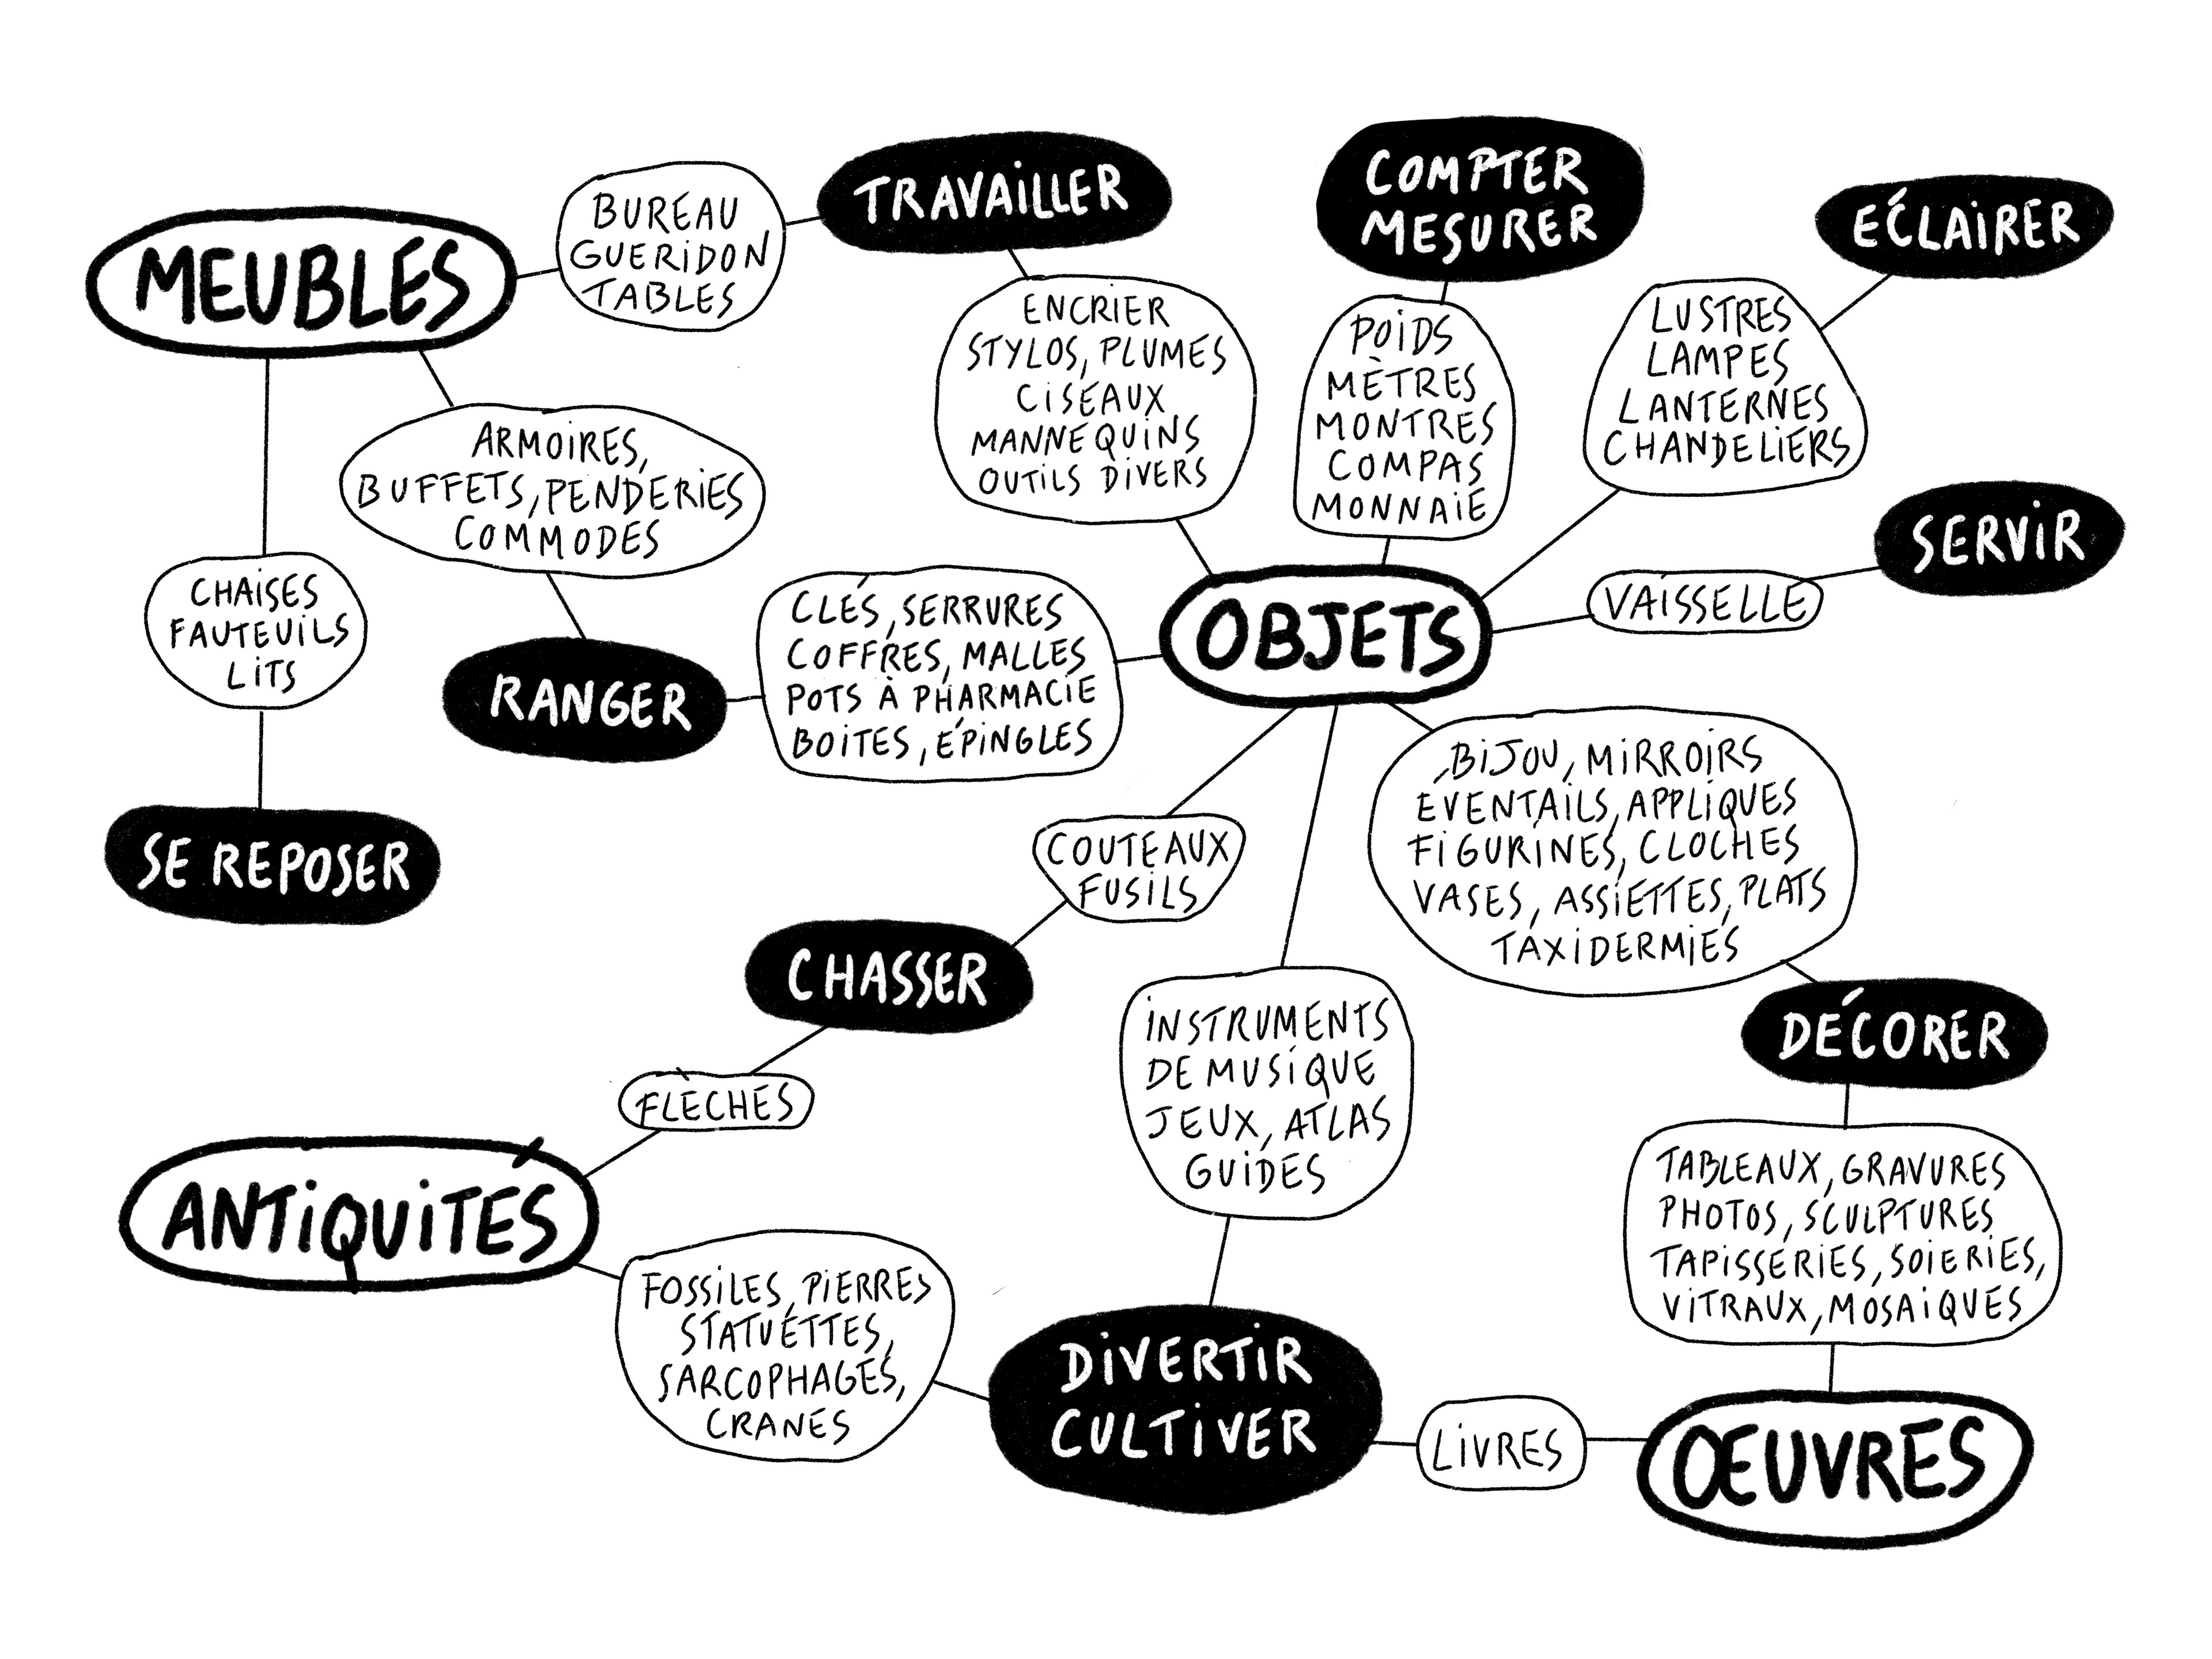 MEUBLES
BUREAU
GUERIDON
TABLES
TRAVAILLER
COMPTER
MESURER
ÉCLAIRER
ENCRIER
STYLOS, PLUMES
CISEAUX
MANNEQUINS
OUTILS DIVERS
POIDS
MÈTRES
MONTRES
COMPAS
MONNAIE
LUSTRES
LAMPES
LANTERNES
CHANDELIERS
ARMOIRES,
BUFFETS, PENDERIES
COMMODES
SERVIR
VAISSELLE
CHAISES
FAUTEUILS
LITS
RANGER
CLÉS, SERRURES
COFFRES, MALLES
POTS À PHARMACIE
BOITES, ÉPINGLES
OBJETS
SE REPOSER
COUTEAUX
FUSILS
BIJOU, MIRROIRS
ÉVENTAILS, APPLIQUES
FIGURINES, CLOCHES
VASES, ASSIETTES, PLATS
TAXIDERMIES
CHASSER
INSTRUMENTS
DE MUSIQUE
JEUX, ATLAS
GUIDES
DÉCORER
FLÈCHES
ANTIQUITÉS
TABLEAUX, GRAVURES
PHOTOS, SCULPTURES
TAPISSERIES, SOIERIES,
VITRAUX, MOSAIQUES
FOSSILES, PIERRES
STATUETTES,
SARCOPHAGES,
CRANES
DIVERTIR
CULTIVER
LIVRES
ŒUVRES